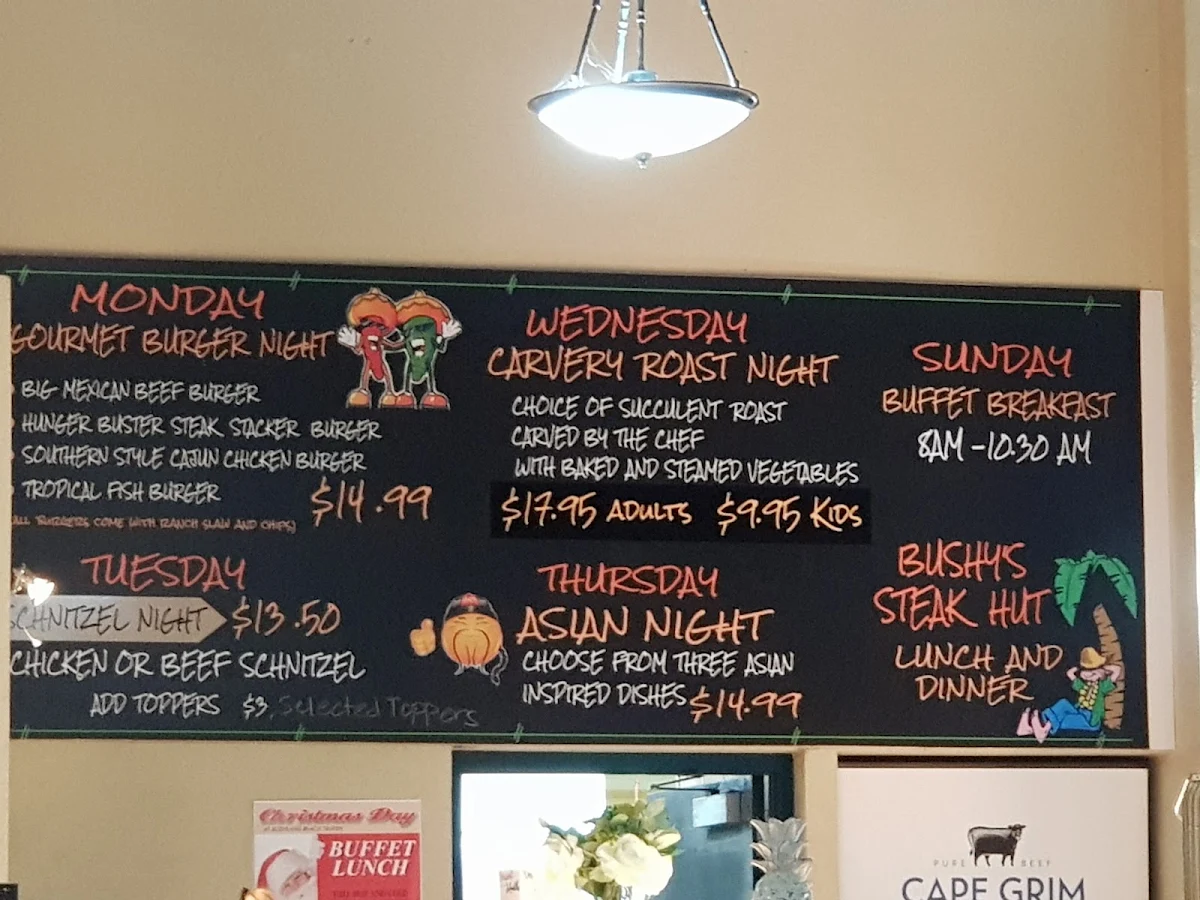 MONDAY
GOURMET BURGER NIGHT
BIG MEXICAN BEEF BURGER
HUNGER BUSTER STEAK STACKER BURGER
SOUTHERN STYLE CAJUN CHICKEN BURGER
TROPICAL FISH BURGER $14.99
ALL BURGERS COME WITH RANCH SLAW AND CHIPS)
TUESDAY
SCHNITZEL NIGHT $13.50
CHICKEN OR BEEF SCHNITZEL
ADD TOPPERS $3, Selected Toppers
WEDNESDAY
CARVERY ROAST NIGHT
CHOICE OF SUCCULENT ROAST
CARVED BY THE CHEF
WITH BAKED AND STEAMED VEGETABLES
$17.95 ADULTS $9.95 KIDS
THURSDAY
ASIAN NIGHT
CHOOSE FROM THREE ASIAN
INSPIRED DISHES $14.99
SUNDAY
BUFFET BREAKFAST
8AM - 10.30 AM
BUSHY'S
STEAK HUT
LUNCH AND
DINNER
Christmas Day
BUFFET
LUNCH
PURE BEEF
CAPE GRIM